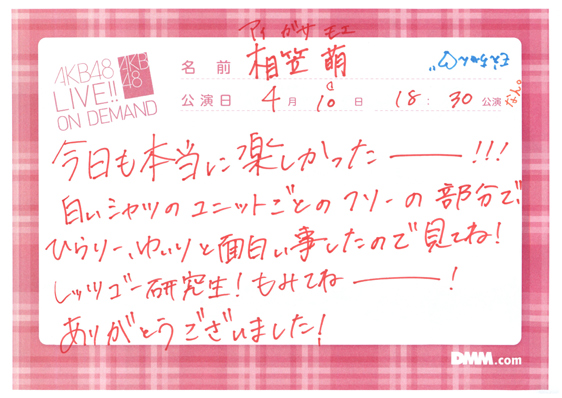 AKB48
LIVE!!
ON DEMAND
AKB
48
アイ がサ モエ
名前 相笠 萌
公演日 4月10日 18:30公演
なん。
今日も本当に楽しかったー!!!
白いシャツのユニットごとのフリーの部分で、
ひらりー、ゆいりと面白い事したので見てね!
レッツゴー研究生!もみてねー!
ありがとうございました!
DMM.com